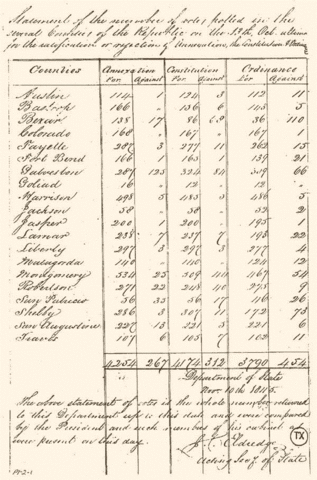 Statement of the number of votes polled in the
several Counties of the Republic on the 13th Oct. ultimo
for the ratification or rejection of Annexation, the Constitution &
Counties Annexation Constitution Ordinance
For Against For Against For Against
Austin 114 1 124 3 112 11
Bastrop 166 " 136 6 143 5
Bexar 138 17 86 110
Colorado 168 " 167 " 167 1
Fayette 287 3 277 11 262 15
Fort Bend 166 1 163 1 139 21
Galveston 287 123 324 84 66
Goliad 16 " 12 " 12 "
Harrison 498 5 485 3 486 5
Jackson 2
Jasper 200 1 200 " 195 1
Lamar 238 7 237 7 193 22
Liberty 297 3 297 3 277 4
Matagorda 140 " 140 " 124 12
Montgomery 534 25 509 44 467 54
Robertson 271 22 248 40 273 9
San Patricio 56 33 56 17 46 26
Shelby 286 3 307 11 172 73
San Augustine 227 13 221 5 221 6
Travis 107 6 105 7 102 11
4254 267 4174 312 3790 454
Department of State
Nov. 10th 1845.
The above statements of votes is the whole number returned
to this Department up to this date and even compared
by the President and such members of his cabinet as
were present on this day.
J. C. Eldredge
Acting Secy of State
TX
PF-2-1